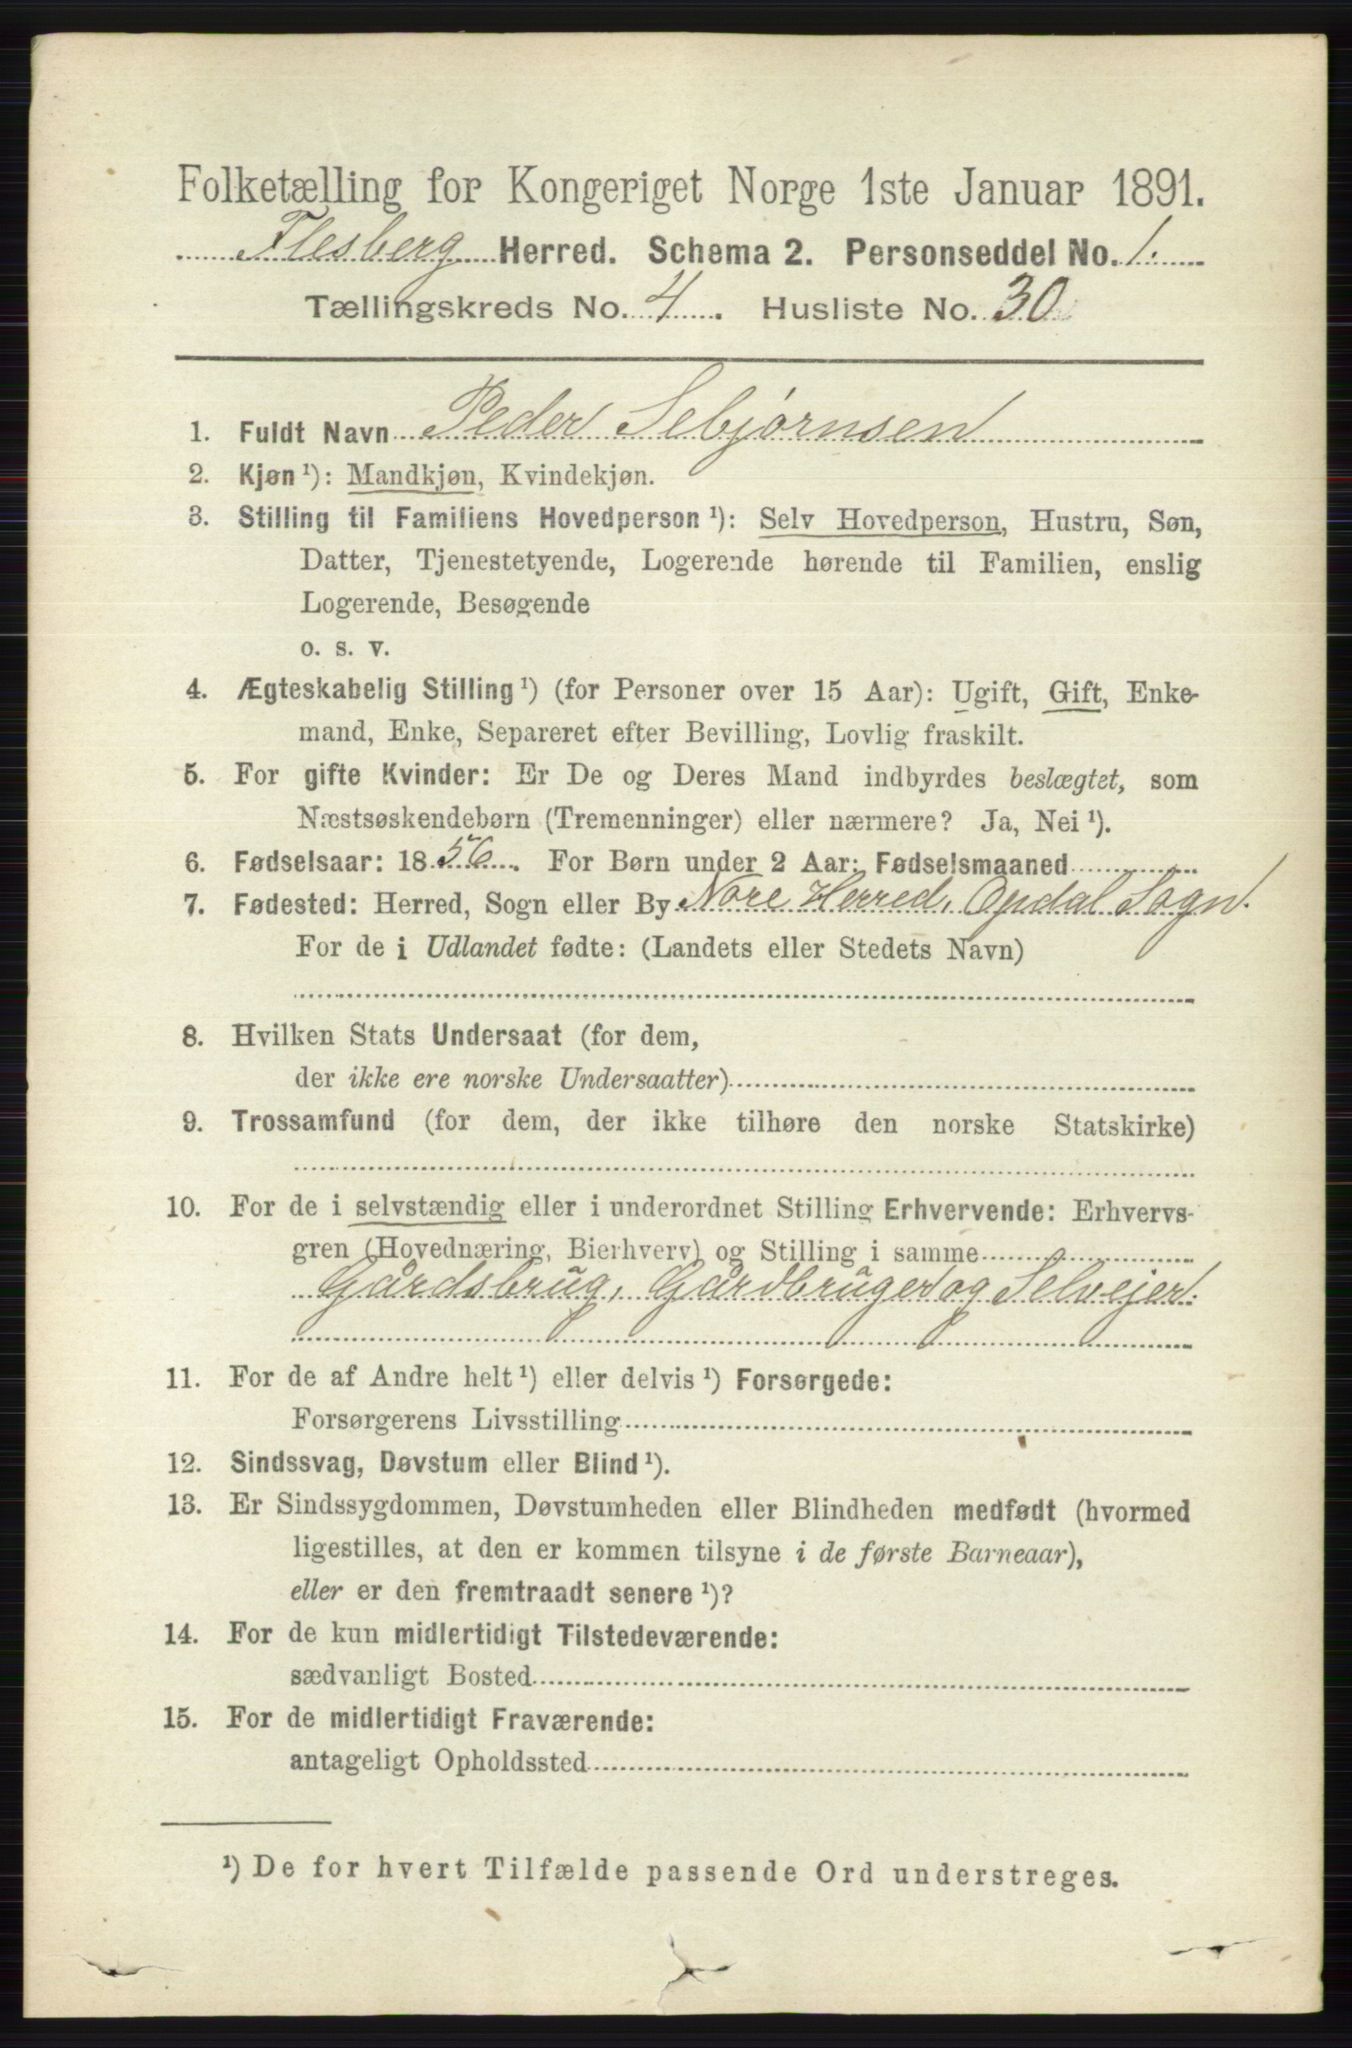 Folketælling for Kongeriget Norge 1ste Januar 1891.
Flesberg Herred. Schema 2. Personseddel No. 1.
Tællingskreds No. 4. Husliste No. 30
1. Fuldt Navn Peder Sebjørnsen
2. Kjøn ¹): Mandkjøn, Kvindekjøn.
3. Stilling til Familiens Hovedperson ¹): Selv Hovedperson, Hustru, Søn,
Datter, Tjenestetyende, Logerende hørende til Familien, enslig
Logerende, Besøgende
o. s. v.
4. Ægteskabelig Stilling ¹) (for Personer over 15 Aar): Ugift, Gift, Enke-
mand, Enke, Separeret efter Bevilling, Lovlig fraskilt.
5. For gifte Kvinder: Er De og Deres Mand indbyrdes beslægtet, som
Næstsøskendebørn (Tremenninger) eller nærmere? Ja, Nei ¹).
6. Fødselsaar: 1856. For Børn under 2 Aar: Fødselsmaaned
7. Fødested: Herred, Sogn eller By Nore Herred, Opdal Sogn.
For de i Udlandet fødte: (Landets eller Stedets Navn)
8. Hvilken Stats Undersaat (for dem,
der ikke ere norske Undersaatter)
9. Trossamfund (for dem, der ikke tilhøre den norske Statskirke)
10. For de i selvstændig eller i underordnet Stilling Erhvervende: Erhvervs-
gren (Hovednæring, Bierhverv) og Stilling i samme
Gårdsbrug, Gårdbruger og Selvejer.
11. For de af Andre helt ¹) eller delvis ¹) Forsørgede:
Forsørgerens Livsstilling
12. Sindssvag, Døvstum eller Blind ¹).
13. Er Sindssygdommen, Døvstumheden eller Blindheden medfødt (hvormed
ligestilles, at den er kommen tilsyne i de første Barneaar),
eller er den fremtraadt senere ¹)?
14. For de kun midlertidigt Tilstedeværende:
sædvanligt Bosted
15. For de midlertidigt Fraværende:
antageligt Opholdssted
¹) De for hvert Tilfælde passende Ord understreges.